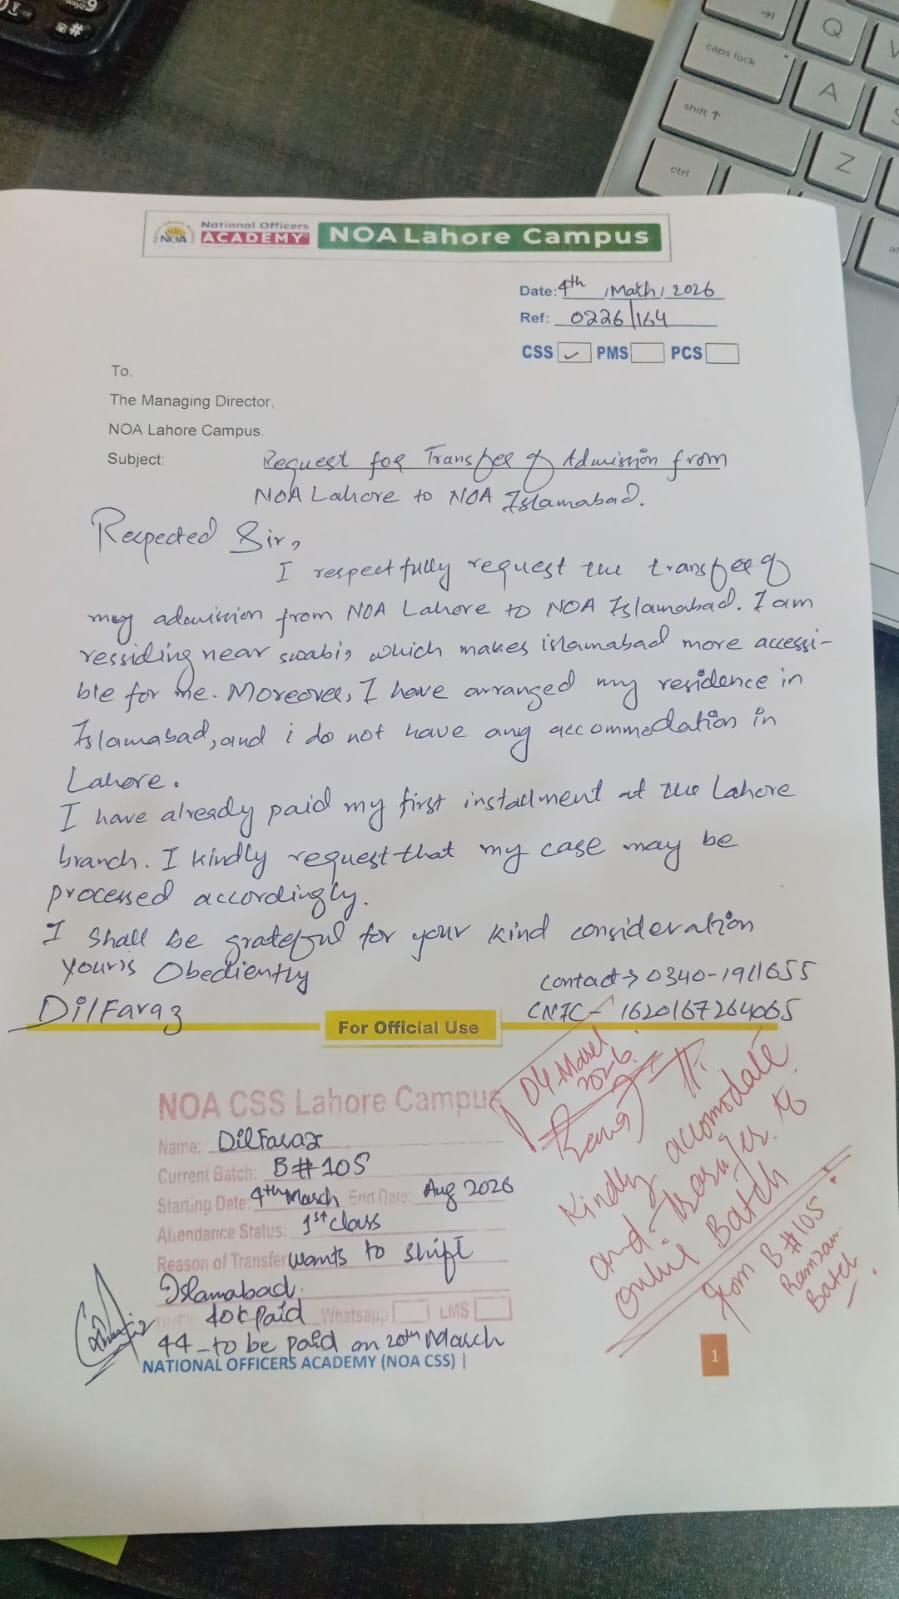 Q
caps lock
A
shift ↑
Z
ctrl
NOA National Officers ACADEMY NOA Lahore Campus
Date: 4th /Math/ 2026
Ref: 0226/164
CSS ✓ PMS PCS
To.
The Managing Director,
NOA Lahore Campus.
Subject: Request for Transfer of Admission from
NOA Lahore to NOA Islamabad.
Respected Sir,
I respectfully request the transfer of
my admission from NOA Lahore to NOA Islamabad. I am
ressiding near swabi, which makes islamabad more accessi-
ble for me. Moreover, I have arranged my residence in
Islamabad, and i do not have any accommodation in
Lahore.
I have already paid my first installment at the Lahore
branch. I kindly request that my case may be
processed accordingly.
I shall be grateful for your kind consideration
Your's Obediently
Contact → 0340-1911655
DilFaraz
CNIC - 1620167264065
For Official Use
NOA CSS Lahore Campus
Name: DilFaraz
Current Batch: B#105
Starting Date: 4th March End Date: Aug 2026
Attendance Status: 1st class
Reason of Transfer wants to shift
Islamabad.
40k paid Whatsapp LMS
44 - to be paid on 20th March
NATIONAL OFFICERS ACADEMY (NOA CSS) |
1
04 March
2026.
Kindly accomodate
and Transfer to
Batch
from B#105
Ramzan
Batch.